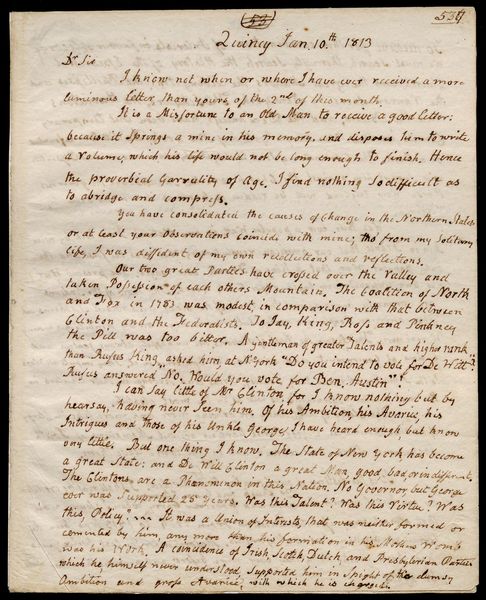 (53)
539
Quincy Jan. 10.th 1813
Dr Sir
I know not when or where I have ever received a more
luminous Letter, than yours of the 2nd of this month.
It is a Misfortune to an old Man to receive a good Letter:
because it Springs a mine in his memory, and disposes him to write
a Volume, which his life would not be long enough to finish. Hence
the proverbial Garrulity of Age. I find nothing So difficult as
to abridge and compress.
You have consolidated the causes of Change in the Northern States
or at least your Observations coincide with mine; tho' from my Solitary
life, I was diffident of my own recollections and reflections.
Our two great Parties have crossed over the Valley and
taken Possession of each others Mountain. The Coalition of North
and Fox in 1783 was modest, in comparison with that between
Clinton and the Federalists. To Jay, King, Ross and Pinkney
the Pill was too bitter. A Gentleman of greater Talents and higher rank
than Rufus King asked him at N. York "Do you intend to vote for De Witt"?
Rufus answered "No. Would you vote for Ben. Austin"?
I can Say little of Mr Clinton for I know nothing but by
hearsay, having never Seen him. Of his Ambition, his Avarice, his
Intrigues and those of his Unkle George, I have heard enough, but know
very little. But one thing I know. The State of New York has become
a great State: and De Witt Clinton a great Man, good, bad or indifferent.
The Clintons are a Phenomenon in this Nation. No Governor but George
ever was Supported 25 Years. Was this Talent? Was this Virtue? Was
this Policy? It was a Union of Interests, that was neither formed or
cemented by him, any more than his formation in his Mothers Womb
was his Work. A coincidence of Irish, Scotch, Dutch, and Presbyterian Parties
which he himself never understood, Supported him in Spight of the clumsy
Ambition and gross Avarice, with which he is charged.